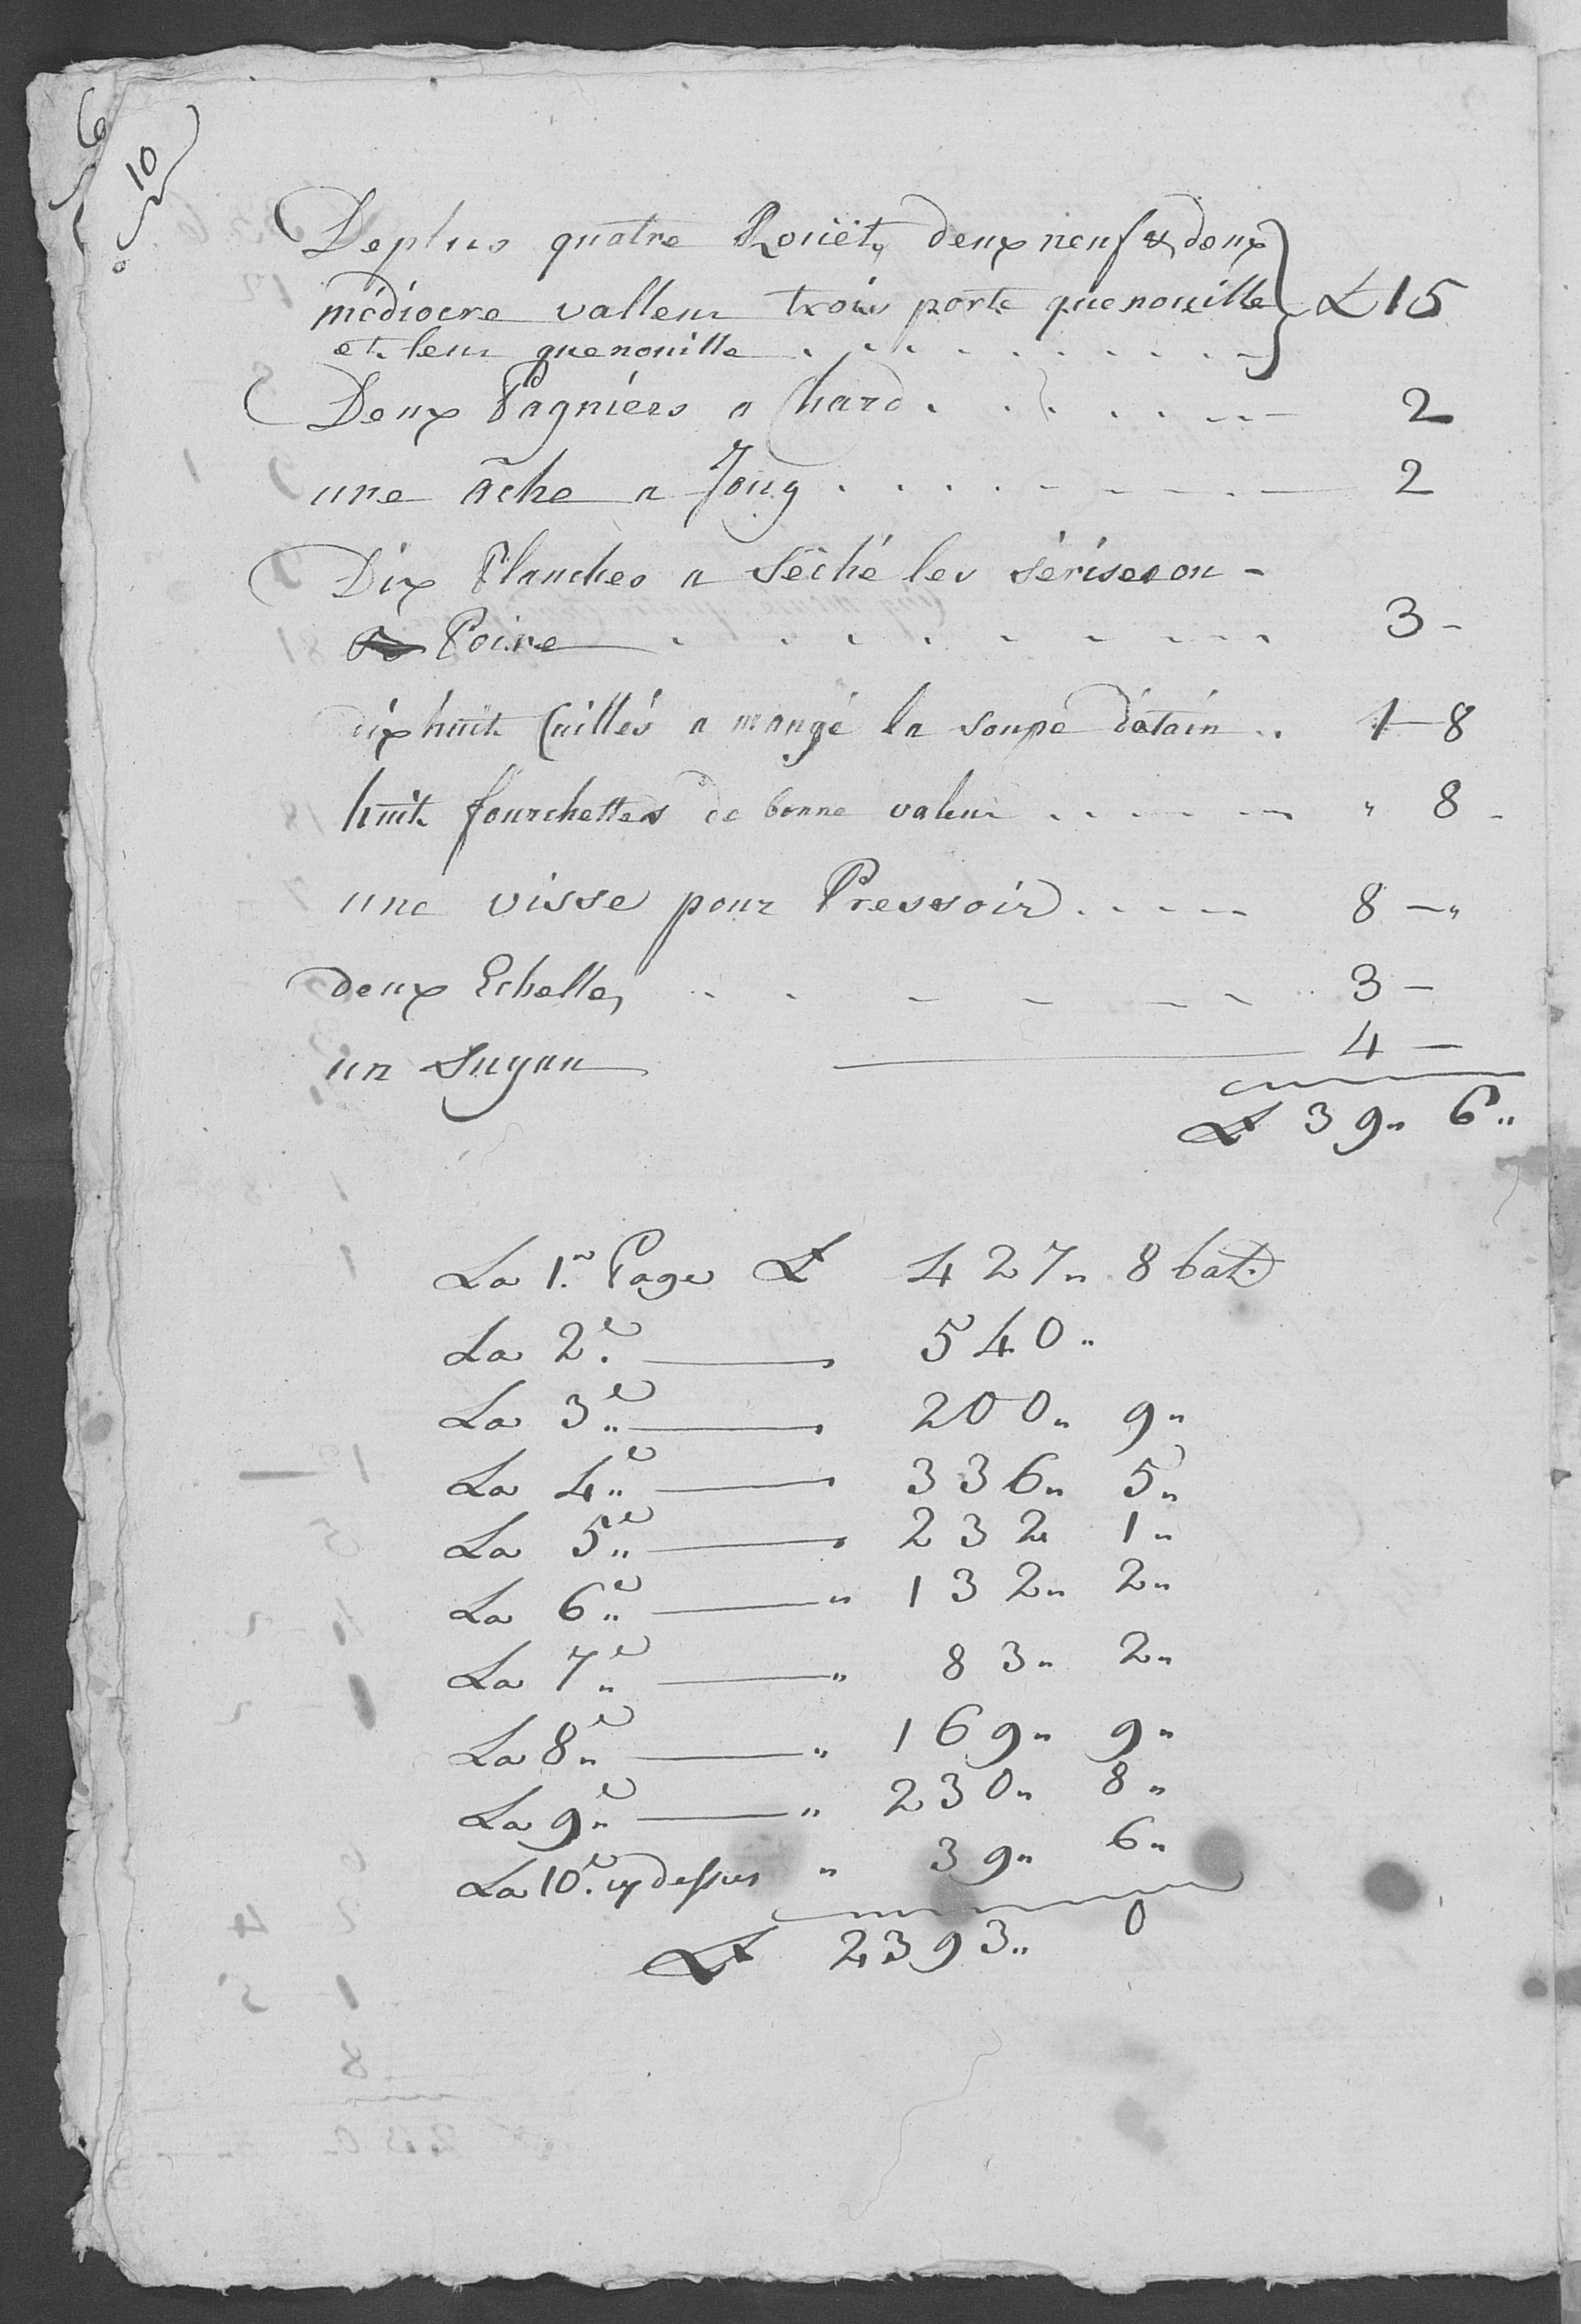 6
10
Deplus quatre Rouët, deux neuf & deux
médiocre valleur trois porte quenouille £ 15
et leur quenouille . . . . . . . . .
Deux Pagniers a hard . . . . . . . 2
une ache a Joug . . . . . . . . . 2
Dix Planches a Séché les sérises ou -
Poire . . . . . . . . . 3 -
dix huit Cuillés a mangé la soupe détain .. 1 - 8
huit fourchettes de bonne valeur . . . . . . " 8 -
une visse pour Pressoir . . . . . 8 - "
deux Echelle, . . - - - - 3 -
un Suyau 4 -
£ 39 " 6 "
La 1.e Page £ 427 " 8 bat.
La 2.e 540 "
La 3.e 200 " 9 "
La 4.e 336 " 5 "
La 5.e 232 1 "
La 6.e " 132 " 2 "
La 7.e " 83 " 2 "
La 8.e " 169 " 9 "
La 9.e " 230 " 8 "
La 10.e cy dessus " 39 " 6 "
£ 2393 " 0